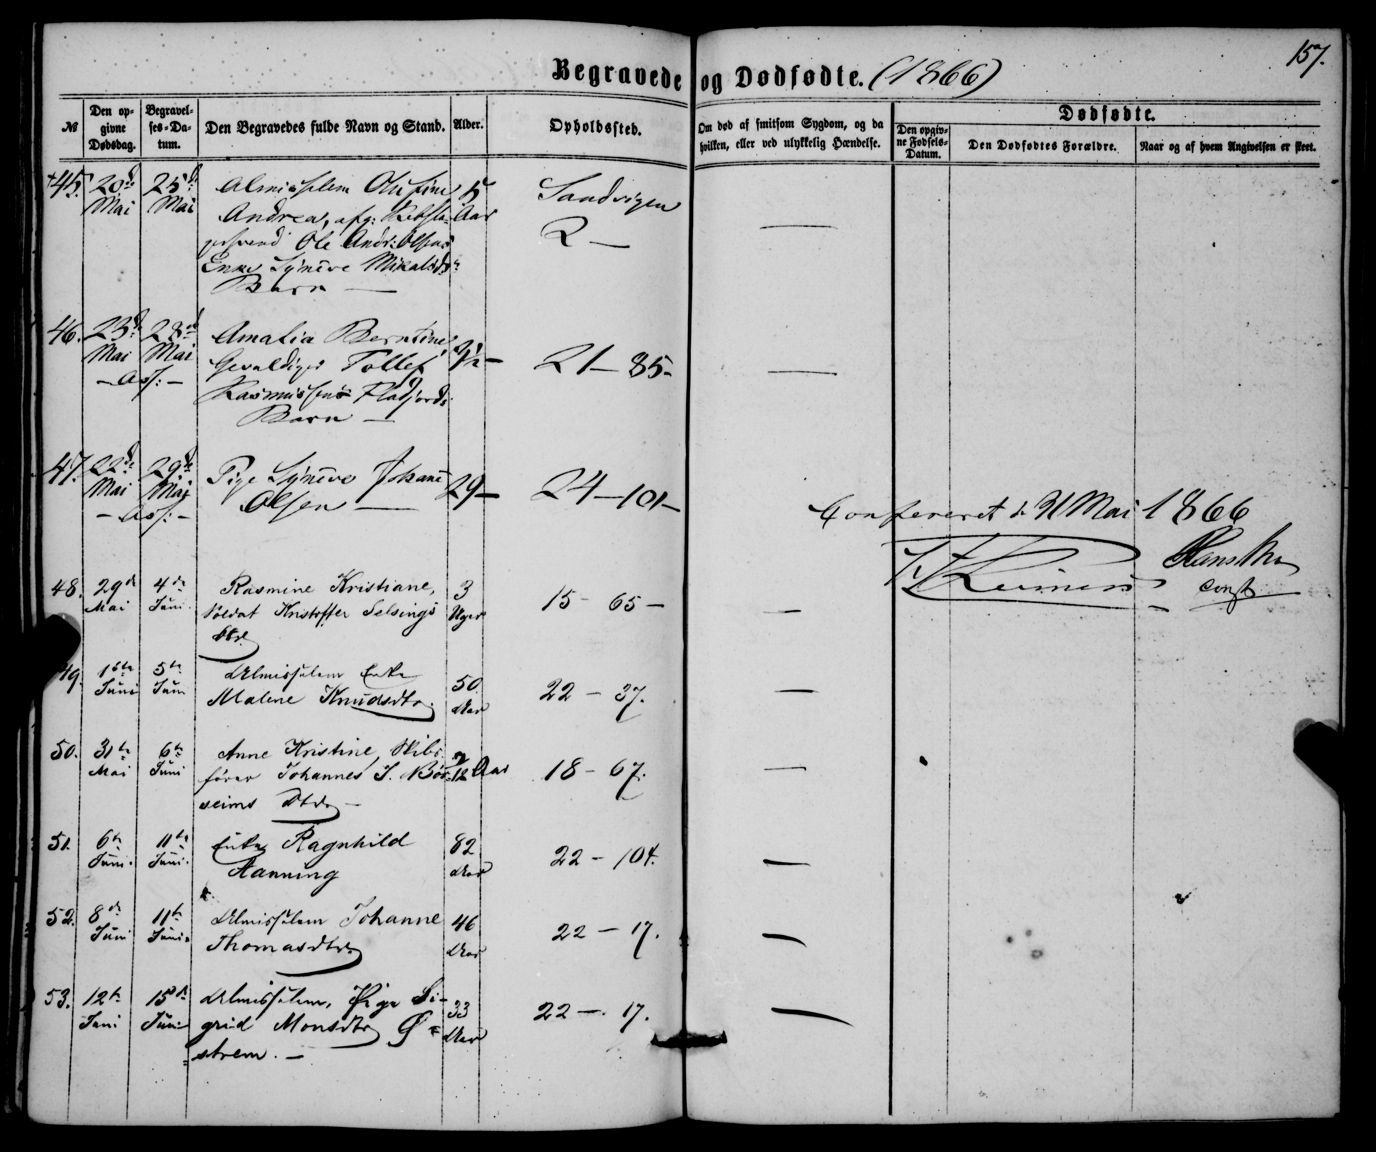 157.
Begravede og Dødfødte. (1866)
№
Den op-
givne
Dødsdag.
Begravel-
ses-Da-
tum.
Den Begravedes fulde Navn og Stand.
Alder.
Opholdssted.
Om død af smitsom Sygdom, og da
hvilken, eller ved ulykkelig Hændelse.
Dødfødte.
Den opgiv-
ne Fødsels-
Datum.
Den Dødfødtes Forældre.
Naar og af hvem Angivelsen er skeet.
+45. 20d Mai 25d Mai
Almisselem Oli Sine 5 Sandvigen
Andrea, afg: Aar 2 —
Ole Andr: Olsens
Enke Synneve Mikalsd:
Barn —
46. 23d Mai 28d Mai
Amalia Berntine
Gevaldiger Tollef 21 — 85 —
— Ass: — Rasmussens Fladjords
Barn —
47. 22d Mai 29d Mai
Pige Synneve Johane 29 — 24 — 101 —
— Ass: — Olsen —
Confereret d. 31 Mai 1866
const.
48. 29d Mai 4de Juni
Rasmine Kristiane, 3 15 - 65 —
Soldat Kristoffer Selsings Uger
Dtr
49. 1ste Juni 5te Juni
Almisselem Enke 50 22 — 37.
Malene Knudsdtr. Aar
50. 31te Mai 6te Juni
Anne Kristine, Skibs 2/12 Aar 18 - 67.
fører Johannes S. Bør-
seims Dtr —
51. 6te Juni 11te Juni
Enke Ragnhild 82 22 — 104.
Hanning Aar
52. 8de Juni 11te Juni
Almisselem Johanne 46 22 — 17.
Thomasdtr Aar
53. 12te Juni 15de Juni
Almisselem, Pige Si- 33 22 —. 17.
grid Monsdtr Ø= Aar
=strem. —